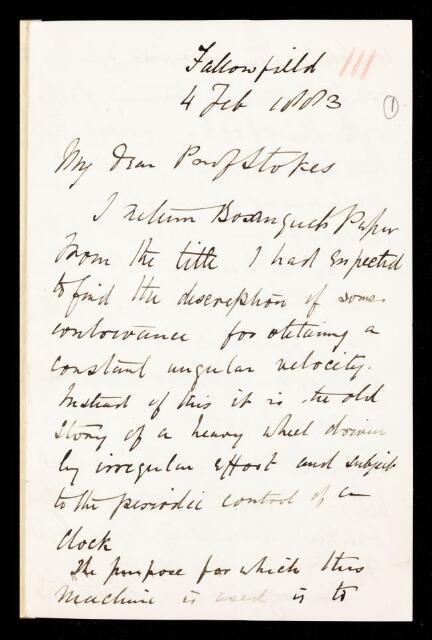 Fallowfield
111
4 Feb 1883
1
My Dear Prof Stokes
I return Bosanquets Paper
From the title I had expected
to find the discreption of some
contrivance for obtaining a
constant angular velocity.
Instead of this it is the old
story of a heavy wheel driven
by irregular effort and subject
to the periodic control of a
clock
The purpose for which this
machine is used is to